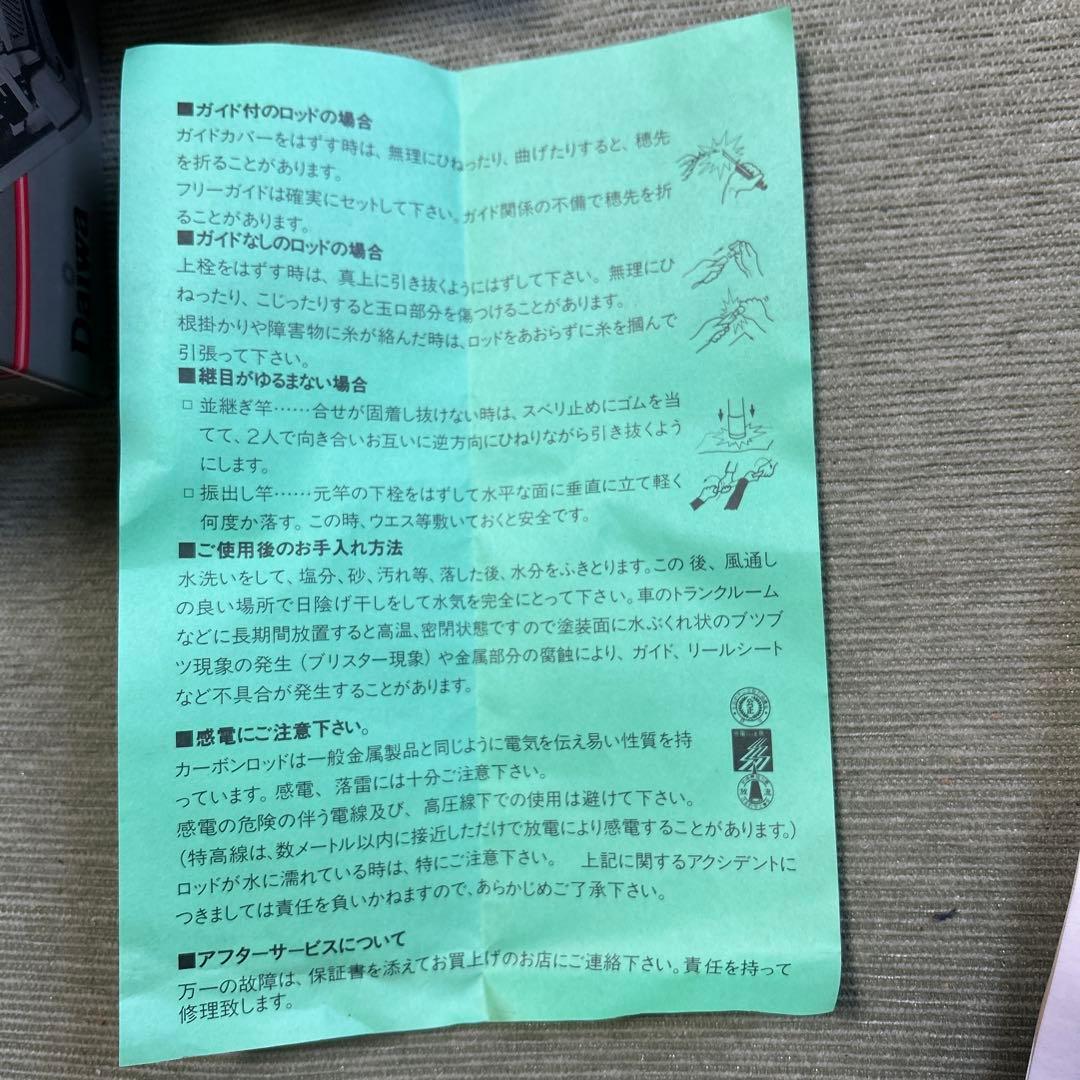 ■ガイド付のロッドの場合
ガイドカバーをはずす時は、無理にひねったり、曲げたりすると、穂先
を折ることがあります。
フリーガイドは確実にセットして下さい。ガイド関係の不備で穂先を折
ることがあります。
■ガイドなしのロッドの場合
上栓をはずす時は、真上に引き抜くようにはずして下さい。無理にひ
ねったり、こじったりすると玉口部分を傷つけることがあります。
根掛かりや障害物に糸が絡んだ時は、ロッドをあおらずに糸を掴んで
引張って下さい。
■継目がゆるまない場合
□ 並継ぎ竿……合せが固着し抜けない時は、スベリ止めにゴムを当
てて、2人で向き合いお互いに逆方向にひねりながら引き抜くよう
にします。
□ 振出し竿……元竿の下栓をはずして水平な面に垂直に立て軽く
何度か落す。この時、ウエス等敷いておくと安全です。
■ご使用後のお手入れ方法
水洗いをして、塩分、砂、汚れ等、落した後、水分をふきとります。この後、風通し
の良い場所で日陰げ干しをして水気を完全にとって下さい。車のトランクルーム
などに長期間放置すると高温、密閉状態ですので塗装面に水ぶくれ状のブツブ
ツ現象の発生（ブリスター現象）や金属部分の腐蝕により、ガイド、リールシート
など不具合が発生することがあります。
■感電にご注意下さい。
カーボンロッドは一般金属製品と同じように電気を伝え易い性質を持
っています。感電、落雷には十分ご注意下さい。
感電の危険の伴う電線及び、高圧線下での使用は避けて下さい。
（特高線は、数メートル以内に接近しただけで放電により感電することがあります。）
ロッドが水に濡れている時は、特にご注意下さい。　上記に関するアクシデントに
つきましては責任を負いかねますので、あらかじめご了承下さい。
■アフターサービスについて
万一の故障は、保証書を添えてお買上げのお店にご連絡下さい。責任を持って
修理致します。
Daiwa
公正